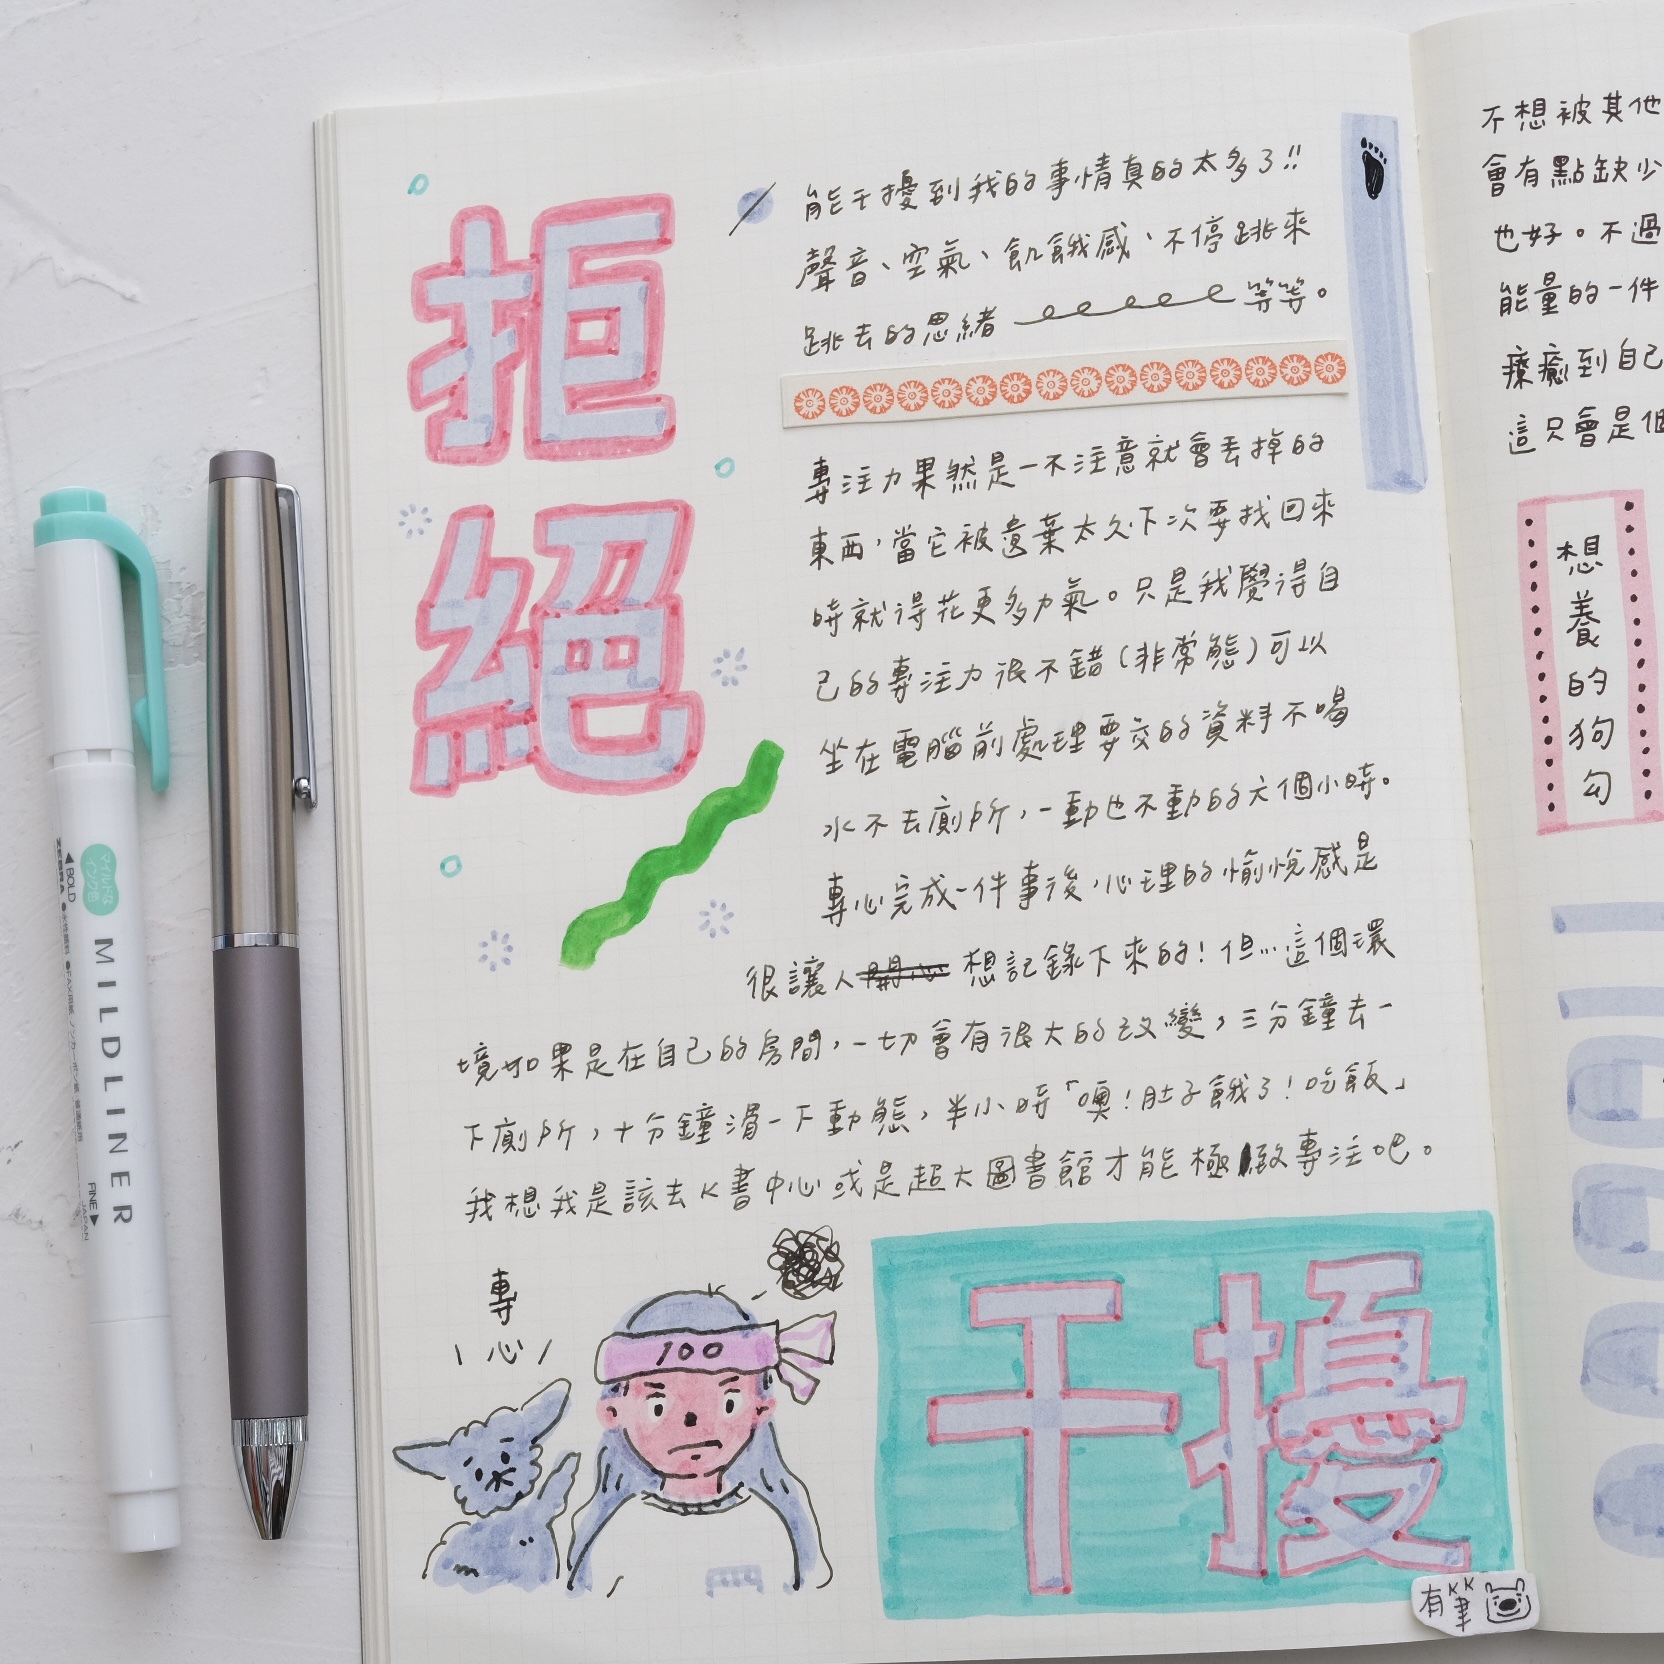 拒絕
能干擾到我的事情真的太多了!!
聲音、空氣、飢餓感、不停跳來
跳去的思緒 等等。
專注力果然是一不注意就會丟掉的
東西，當它被遺棄太久下次要找回來
時就得花更多力氣。只是我覺得自
己的專注力很不錯(非常態)可以
坐在電腦前處理要交的資料不喝
水不去廁所，一動也不動的六個小時。
專心完成一件事後，心理的愉悅感是
很讓人開心 想記錄下來的！但…這個環
境如果是在自己的房間，一切會有很大的改變，三分鐘去一
下廁所，十分鐘滑一下動態，半小時「噢！肚子餓了！吃飯」
我想我是該去K書中心或是超大圖書館才能極致專注吧。
專心
100
干擾
有KK筆
不想被其他
會有點缺少
也好。不過
能量的一件
療癒到自己
這只會是個
想養的狗勾
MILDLINER
◀BOLD
ZEBRA
FINE▶
JAPAN
マイルドな
インク色